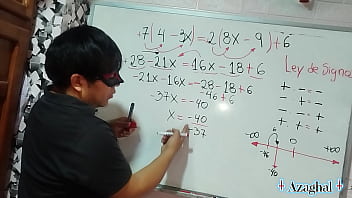 +7(4 -3x)=2(8x - 9)+6
+28-21x = 16x -18 + 6
-21x-16x=-28-18+6
-46+6
-37x = -40
x = -40
-37
Ley de Signos
+ - = -
- + = -
- - = +
+ + = +
-∞ 0 +∞
Azaghal